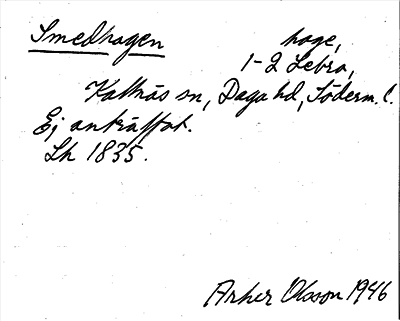 Smedhagen hage,
1-2 Lebro,
Kattnäs sn, Daga hd, Söderm. l.
Ej anträffat.
Lh 1835.
Arher Olsson 1946